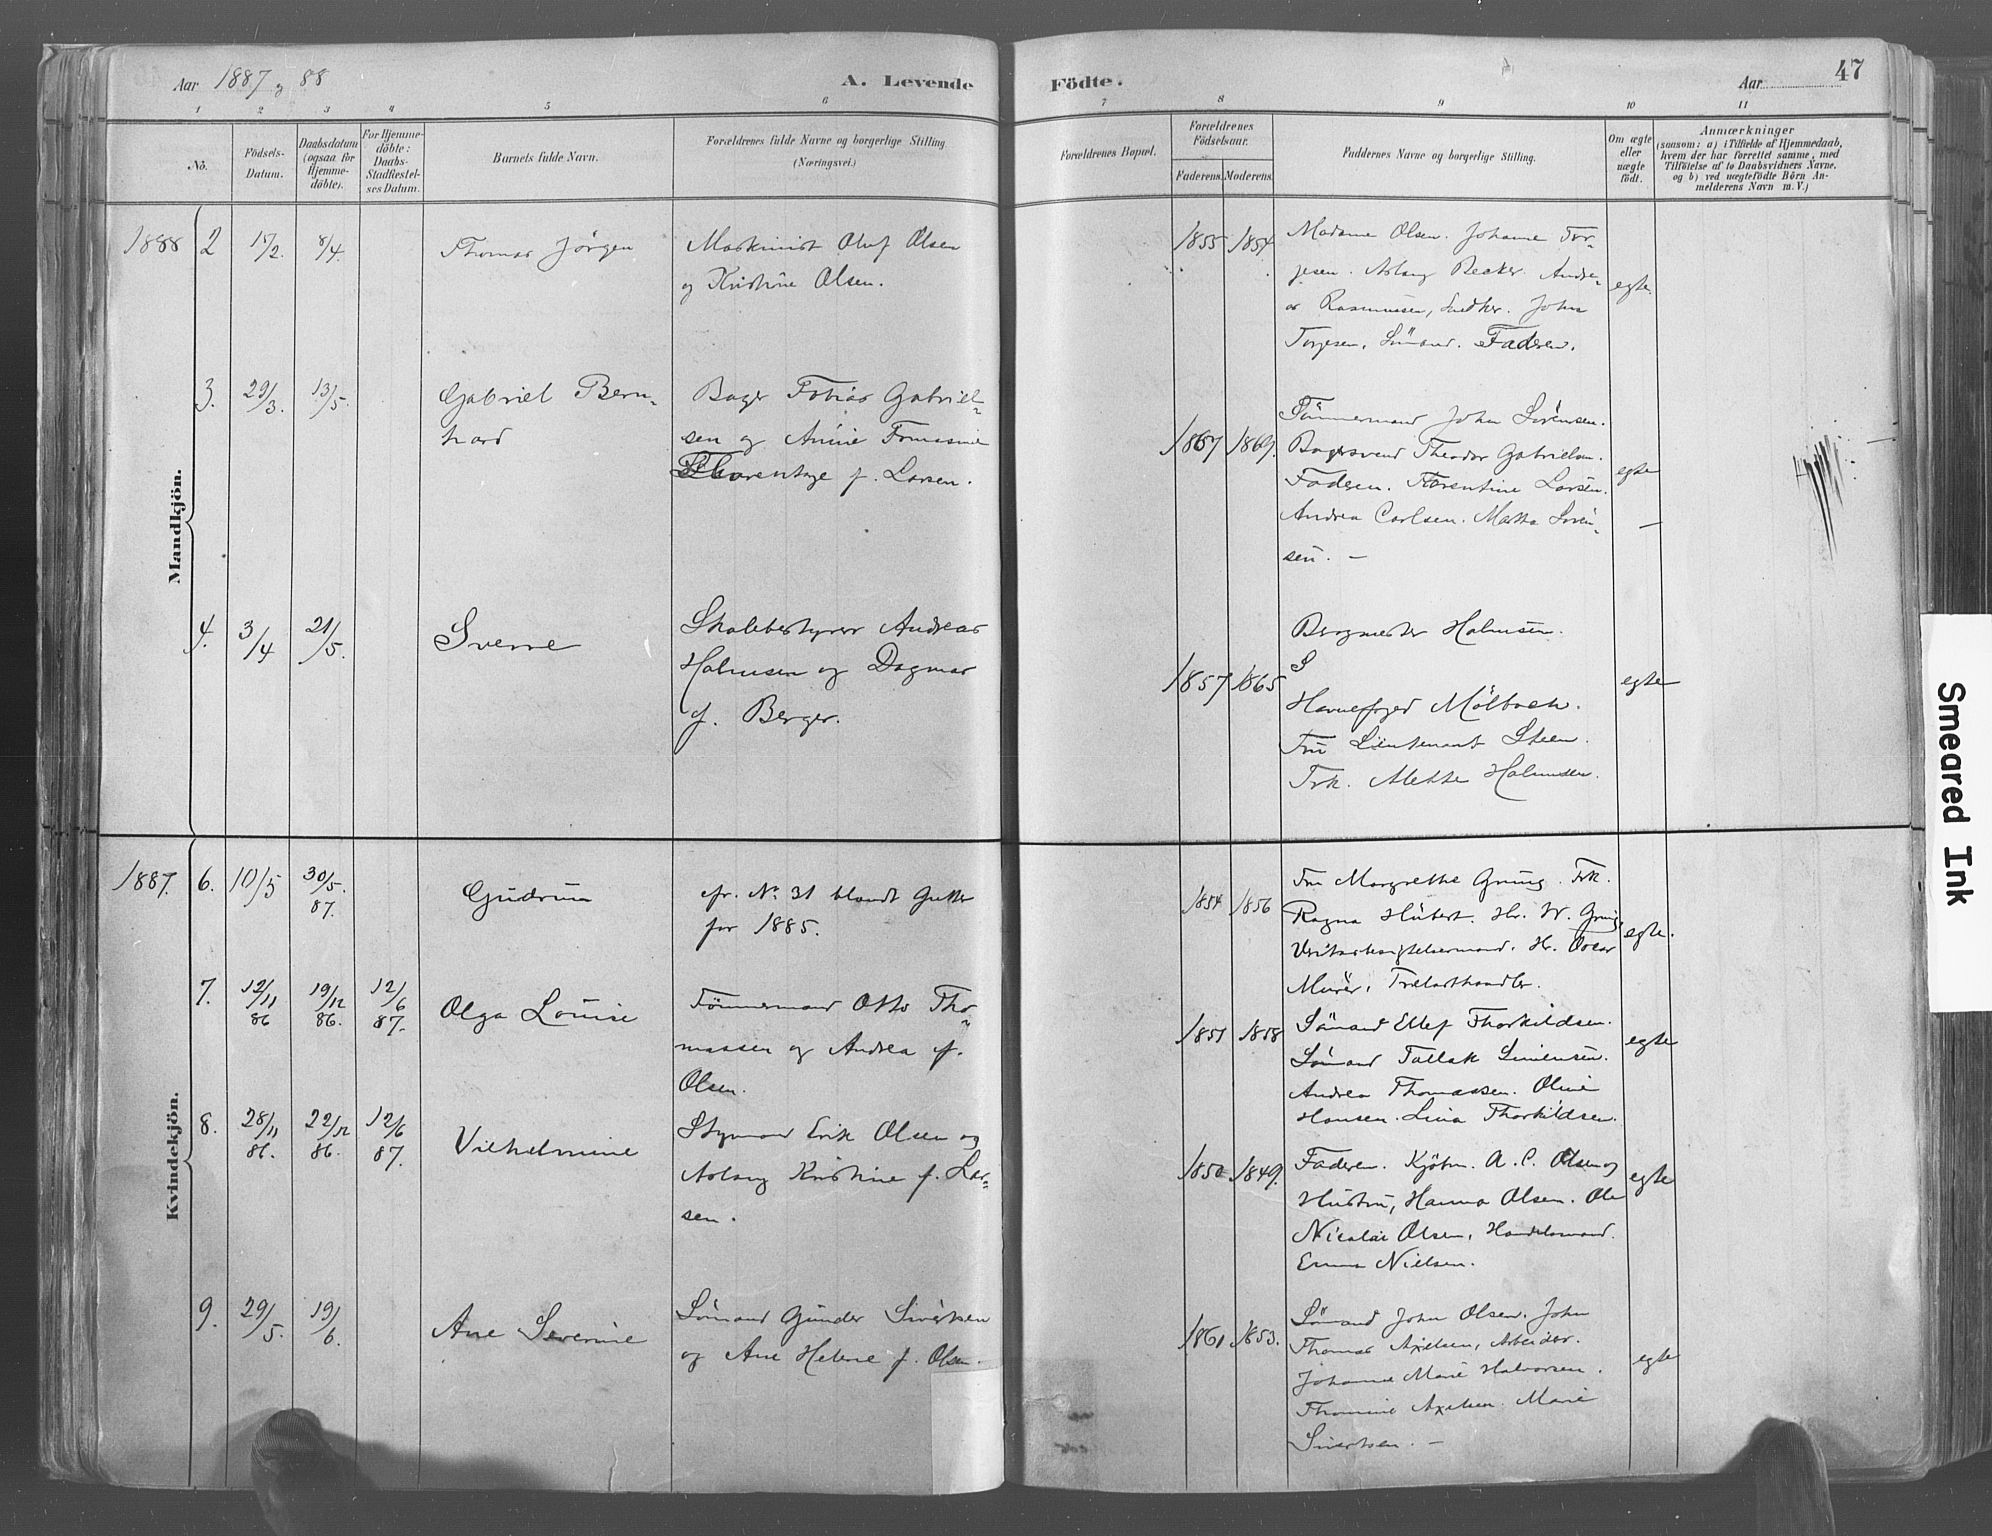 Aar 1887 og 88
A. Levende
Födte.
Aar
47
1 2 3 4 5 6 7 8 9 10 11
No.
Födsels-
Datum.
Daabsdatum
(ogsaa for
Hjemme-
döbte).
For Hjemme-
döbte:
Daabs-
Stadfæstel-
ses Datum.
Barnets fulde Navn.
Forældrenes fulde Navne og borgerlige Stilling
(Næringsvei.)
Forældrenes Bopæl.
Forældrenes
Födselsaar.
Faderens. Moderens.
Faddernes Navne og borgerlige Stilling.
Om ægte
eller
uægte
födt.
Anmærkninger
(saasom: a) i Tilfælde af Hjemmedaab,
hvem der har forrettet samme, med
Tilföielse af to Daabsvidners Navne.
og b) ved uægtefödte Börn An-
melderens Navn m.V.)
Mandkjön.
1888 2 8/4. Thomas Jörgen
Maskinist Oluf Olsen
og Kristine Olsen.
1855 1854
Madame Olsen. Johanne Tor-
jesen. Aslaug Becker. Andre-
as Rasmussen, Snedker. John
Torjesen, Sömand. Faderen.
egte.
3. 29/3. 13/5. Gabriel Bern-
hard
Bager Tobias Gabriel-
sen og Anine Tomasine
Florentine f. Larsen.
1867 1869.
Tömmermand John Sörensen.
Bagersvend Theodor Gabrielsen.
Faderen. Florentine Larsen.
Andrea Carlsen. Martha Sören-
sen. –
egte
–
4. 3/4 21/5. Sverre
Skolebestyrer Andreas
Holmsen og Dagmar
f. Berger.
1857 1865
Bergmester Holmsen.
S
Havnefoged Mölbach.
Fru Lieutenant Steen.
Frk. Alette Holmsen.
egte
Kvindekjön.
1887. 6. 10/5 30/5. 87. Gudrun
cfr. No 31 blandt Gutter
for 1885.
1854 1856
Fru Margrethe Grung. Frk.
Ragna Hübert. Hr. W. Grung,
Hr. Oscar
Murer, Trælasthandler.
egte.
7. 12/11 86 19/12 86. 12/6 87. Olga Louise
Tömmermand Otto Tho-
massen og Andrea f.
Olsen.
1851 1858
Sömand Ellef Thorkildsen.
Sömand Tallak Simensen.
Andrea Thomassen. Oline
Hansen. Lina Thorkildsen.
egte
8. 28/11 86. 22/12 86. 12/6 87. Vilhelmine
Styrmand Erik Olsen og
Aslaug Kristine f. Lar-
sen.
1850 1849.
Faderen. Kjöbm. A. C. Olsen og
Hustru, Hanna Olsen. Ole
Nicolai Olsen, Handelsmand.
Emma Nielsen.
egte
9. 29/5. 19/6. Ane Severine
Sömand Gunder Sivertsen
og Ane Helene f. Olsen.
1861 1853.
Sömand John Olsen. John
Thomas Axelsen, Arbeider.
Johanne Marie Halvorsen.
Thomine Axelsen. Marie
Sivertsen. –
egte
Smeared Ink